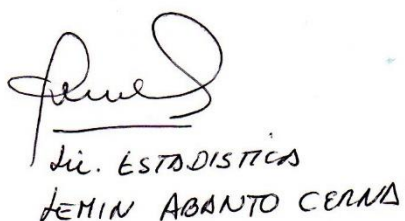 Lic. ESTADISTICA
LEMIN ABANTO CERNA